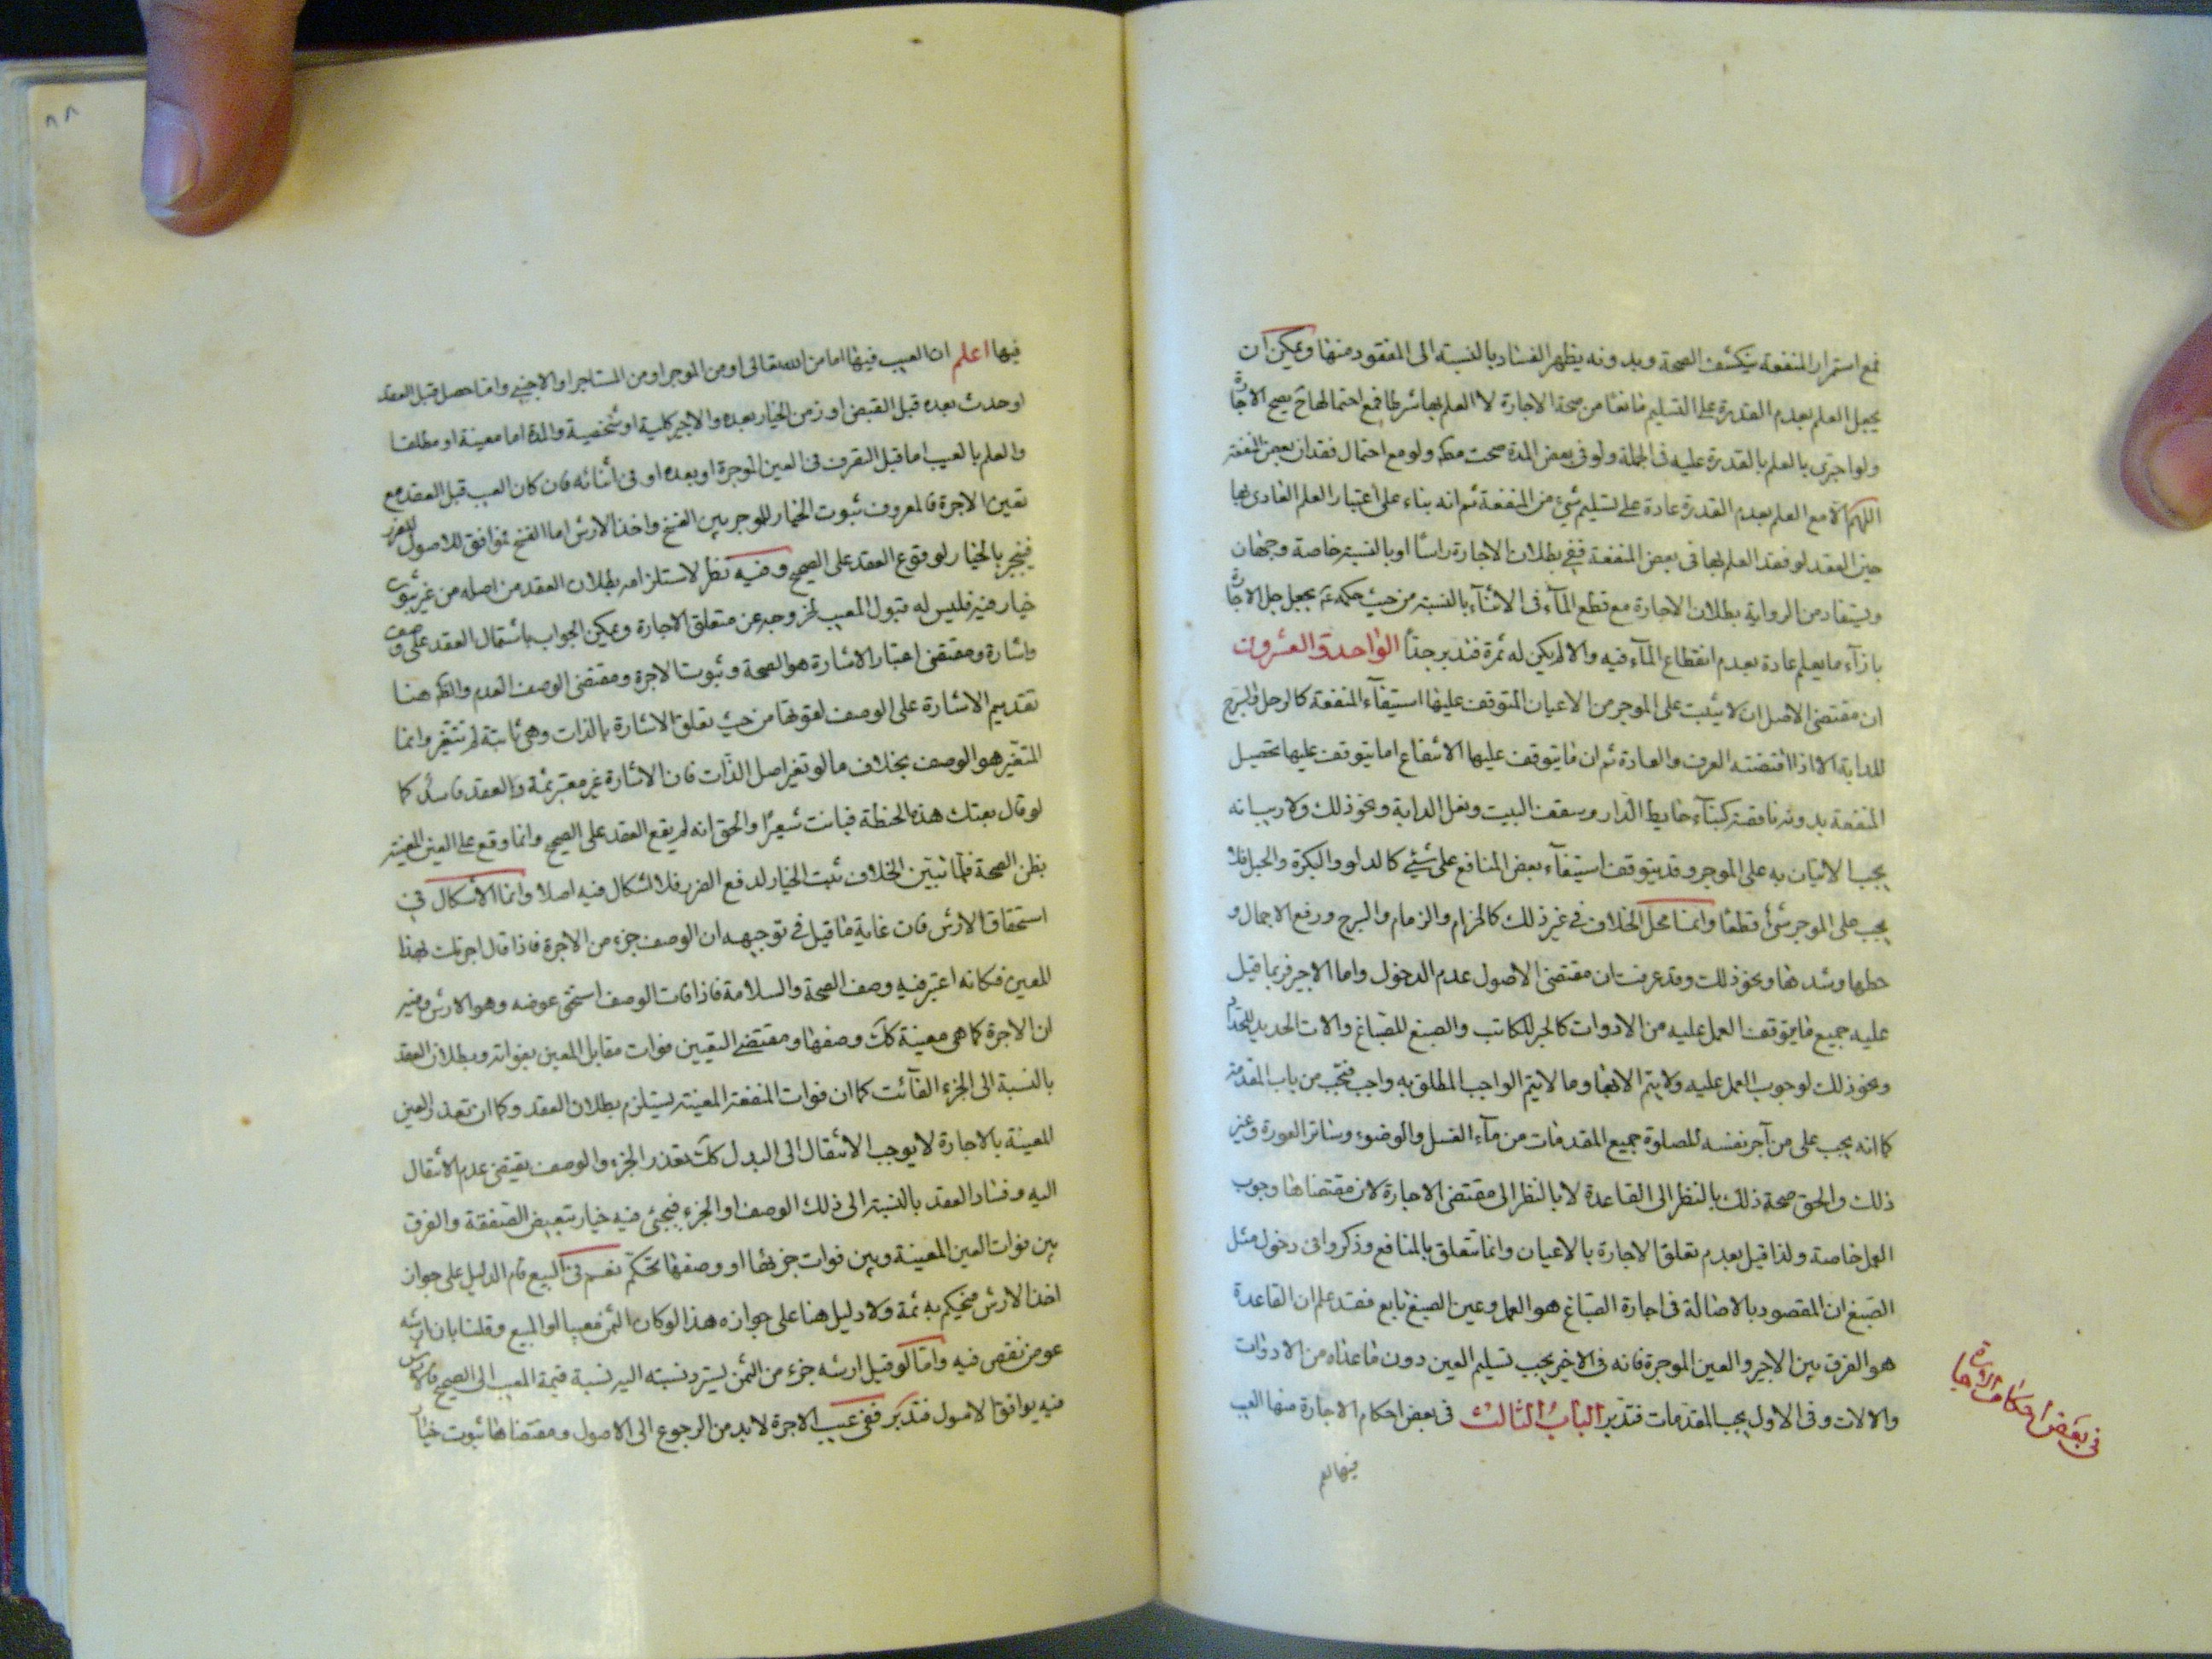 فمع استمرار المنفعة ينكشف الصحة وبدونه يظهر الفساد بالنسبة الى المفقود منها ويمكن ان
يجعل العلم بعدم القدرة على التسليم مانعا من صحة الاجارة لا العلم بها شرطا فمع احتمالها ح يصح الاجارة
ولو اجتزى بالعلم بالقدرة عليه فى الجملة ولو فى بعض المدة صحت مط ولو مع احتمال فقدان بعض المنفعة
اللهم الا مع العلم بعدم القدرة عادة على تسليم شئ من المنفعة ثم انه بناء على اعتبار العلم العادى بها
حين العقد لو فقد العلم بها فى بعض المنفعة ففى بطلان الاجارة راسًا او بالنسبة خاصة وجهان
ويستفاد من الرواية بطلان الاجارة مع قطع المآء فى الاثنآء بالنسبة من حيث حكمه ع بجعل جل الاجارة
بازآء ما يعلم عادة بعدم انقطاع المآء فيه والا لم يكن له ثمرة فتدبر جدًا الواحدة والعشرون
ان مقتضى الاصل ان لا يثبت على الموجر من الاعيان المتوقف عليها استيفآء المنفعة كالرحل والسرج
للدابة الا اذا اقتضته العرف والعادة ثم ان ما يتوقف عليها الانتفاع اما يتوقف عليها تحصيل
المنفعة بدونه ناقصة كبنآء حايط الدار وسقف البيت ونعل الدابة ونحو ذلك ولا ريب انه
يجب الاتيان به على الموجر وقد يتوقف استيفآء بعض المنافع على شئ كالدلو والبكرة والحبل فلا
يجب على الموجر شئ قطعًا وانما محل الخلاف فى غير ذلك كالحزام والزمام والسرج ورفع الاحمال و
حطها وشدها ونحو ذلك وقد عرفت ان مقتضى الاصول عدم الدخول واما الاجير فربما قيل
عليه جميع ما يتوقف العمل عليه من الادوات كالحبر للكاتب والصبغ للصباغ والات الحديد للحداد
ونحو ذلك لوجوب العمل عليه ولا يتم الا بها وما لا يتم الواجب المطلق به واجب فتجب من باب المقدمة
كما انه يجب على من آجر نفسه للصلوة جميع المقدمات من مآء الغسل والوضوء وساتر العورة وغير
ذلك والحق صحة ذلك بالنظر الى القاعدة لا بالنظر الى مقتضى الاجارة لان مقتضاها وجوب
العمل خاصة ولذا قيل بعدم تعلق الاجارة بالاعيان وانما تتعلق بالمنافع وذكروا فى دخول مثل
الصبغ ان المقصود بالاصالة فى اجارة الصباغ هو العمل وعين الصبغ تابع فقد علم ان القاعدة
هو الفرق بين الاجير والعين الموجرة فانه فى الاخير يجب تسليم العين دون ما عداه من الادوات
والالات وفى الاول يجب المقدمات فتدبر الباب الثالث فى بعض احكام الاجارة منها العيب
فيها اعلم
فى بعض احكام الاجارة
٨٨
فيها اعلم ان العيب فيها اما من الله تعالى او من الموجر او من المستاجر او الاجنبى واما حصل قبل العقد
او حدث بعده قبل القبض او زمن الخيار بعده والاجير كلية او شخصية والمدة اما معينة او مطلقا
والعلم بالعيب اما قبل التصرف فى العين الموجرة او بعده او فى اثنائه فان كان العيب قبل العقد مع
تعين الاجرة فالمعروف ثبوت الخيار للموجر بين الفسخ واخذ الارش اما الفسخ فموافق للاصول للضرر
فينجبر بالخيار لوقوع العقد على الصحيح وفيه نظر لاستلزامه بطلان العقد من اصله من غير ثبوت
خيار فيه فليس له قبول المعيب لخروجه عن متعلق الاجارة ويمكن الجواب باشتمال العقد على وصف
واشارة ومقتضى اعتبار الاشارة هو الصحة وثبوت الاجرة ومقتضى الوصف العدم والظم هنا
تقديم الاشارة على الوصف لقوتها من حيث تعلق الاشارة بالذات وهى ثابتة لم تتغير وانما
المتغير هو الوصف بخلاف ما لو تغير اصل الذات فان الاشارة غير معتبر ثمة والعقد فاسد كما
لو قال بعتك هذه الحنطة فبانت شعيرًا والحق انه لم يقع العقد على الصحيح وانما وقع على العين المعينة
بظن الصحة فلما تبين الخلاف ثبت الخيار لدفع الضرر فلا اشكال فيه اصلا وانما الاشكال فى
استحقاق الارش فان غاية ما قيل فى توجيهه ان الوصف جزء من الاجرة فاذا قال اجرتك بهذا
المعين فكانه اعتبر فيه وصف الصحة والسلامة فاذا فات الوصف استحق عوضه وهو الارش وفيه
ان الاجرة كما هى معينة كك وصفها ومقتضى التعيين فوات مقابل المعين بفواته وبطلان العقد
بالنسبة الى الجزء الفآئت كما ان فوات المنفعة المعينة يستلزم بطلان العقد وكما ان تعذر العين
المعينة بالاجارة لا يوجب الانتقال الى البدل كك تعذر الجزء والوصف يقتضى عدم الانتقال
اليه وفساد العقد بالنسبة الى ذلك الوصف او الجزء فيجئ فيه خيار تبعيض الصفقة والفرق
بين فوات العين المعينة وبين فوات جزئها او وصفها تحكم نعم فى البيع قام الدليل على جواز
اخذ الارش فيحكم به ثمة ولا دليل هنا على جوازه هذا لو كان الثمن معيبا او المبيع وقلنا بان ارشه
عوض نقص فيه واما لو قيل ارشه جزء من الثمن يسترد نسبته اليه نسبة قيمة المعيب الى الصحيح فالارش
فيه يوافق الاصول فتدبر ففى عيب الاجرة لابد من الرجوع الى الاصول ومقتضاها ثبوت خيار